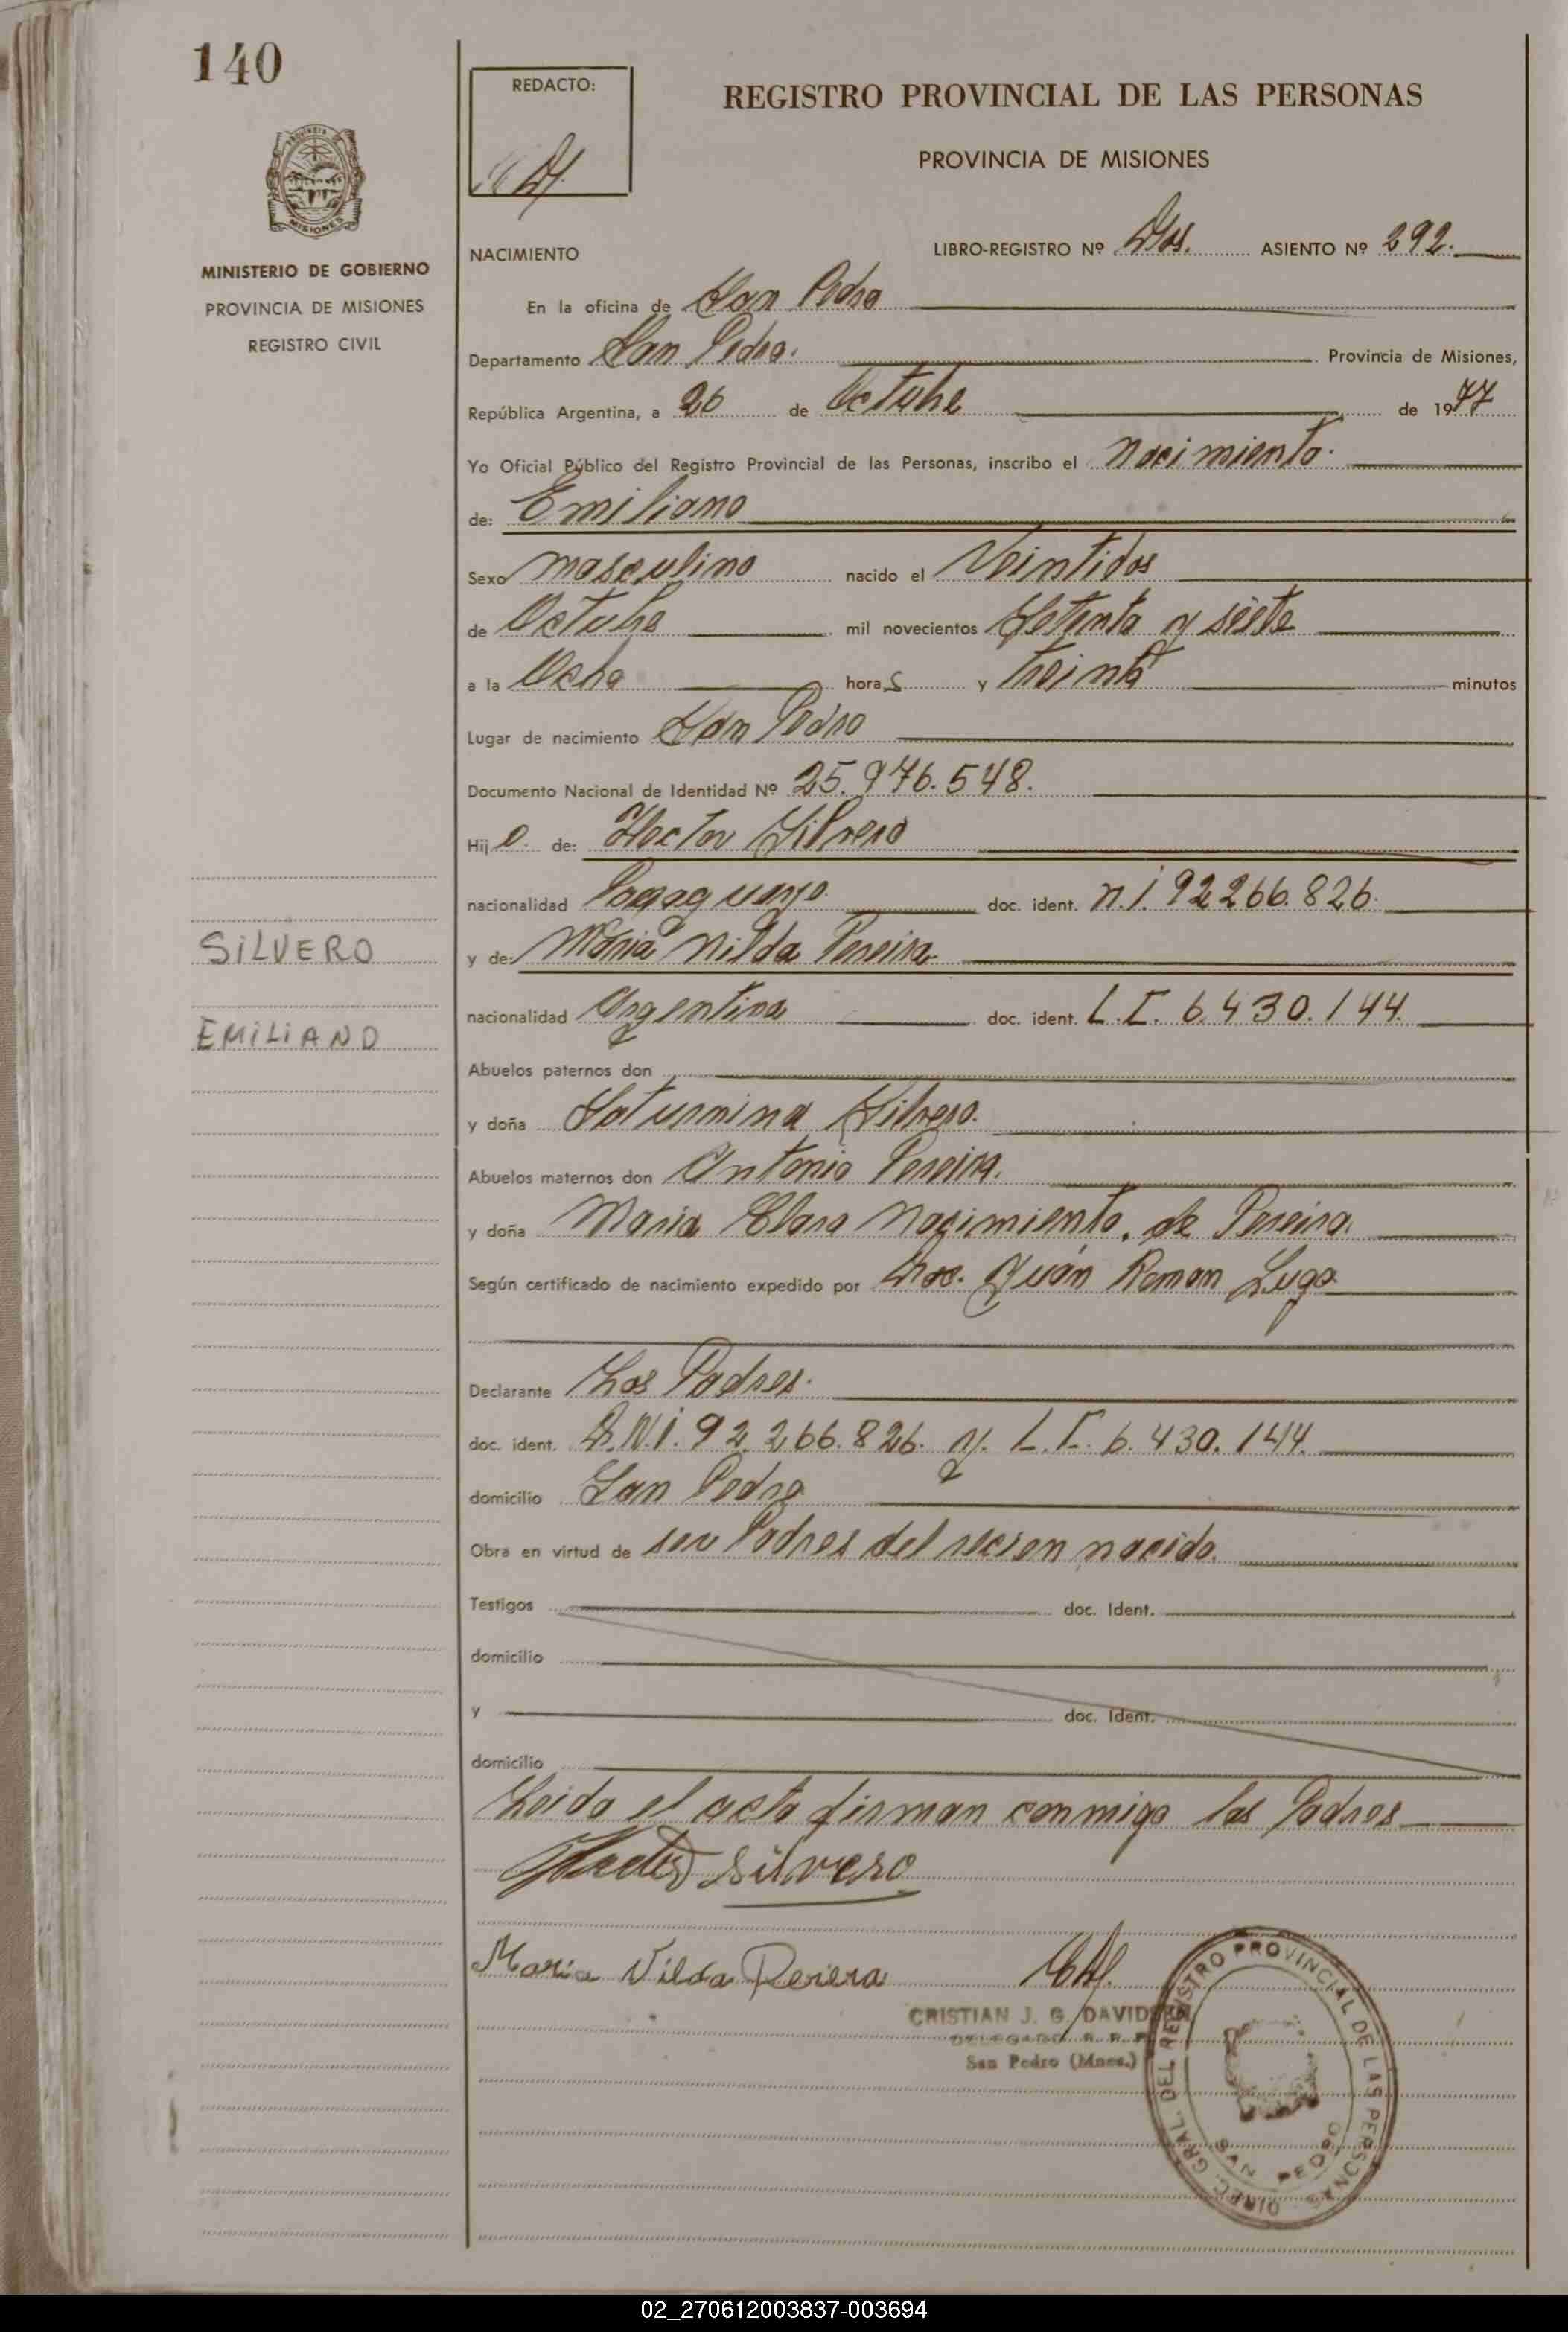 140
REDACTO:
REGISTRO PROVINCIAL DE LAS PERSONAS
PROVINCIA DE MISIONES
MISIONES
MINISTERIO DE GOBIERNO
PROVINCIA DE MISIONES
REGISTRO CIVIL
NACIMIENTO LIBRO-REGISTRO Nº Dos. ASIENTO Nº 292.
En la oficina de San Pedro
Departamento San Pedro. Provincia de Misiones,
República Argentina, a 26 de Octubre de 1977
Yo Oficial Público del Registro Provincial de las Personas, inscribo el nacimiento.
de: Emiliano
Sexo masculino nacido el Veintidos
de Octubre mil novecientos Setenta y siete
a la Ocho horas y treinta minutos
Lugar de nacimiento San Pedro
Documento Nacional de Identidad Nº 25.976.548.
Hijo de: Hector Silvero
nacionalidad Paraguayo. doc. ident. n.i. 92266.826.
y de: Maria Nilda Pereira.
nacionalidad Argentina doc. ident. L.C. 6.430.144.
Abuelos paternos don
y doña Saturnina Silvero.
Abuelos maternos don Antonio Pereira.
y doña Maria Clara Nacimiento. de Pereira.
Según certificado de nacimiento expedido por Juan Roman Lugo.
Declarante Los Padres.
doc. ident. D.N.i. 92.266.826. y. L.C. 6.430.144.
domicilio San Pedro
Obra en virtud de ser Padres del recien nacido.
Testigos doc. Ident.
domicilio
y doc. Ident.
domicilio
Leida el acta firman conmigo los Padres
SILVERO
EMILIANO
Hector Silvero
Maria Nilda Pereira
CRISTIAN J. G. DAVIDSEN
DELEGADO R. P. P.
San Pedro (Mnes.)
DIREC. GRAL. DEL REGISTRO PROVINCIAL DE LAS PERSONAS
SAN PEDRO
02_270612003837-003694